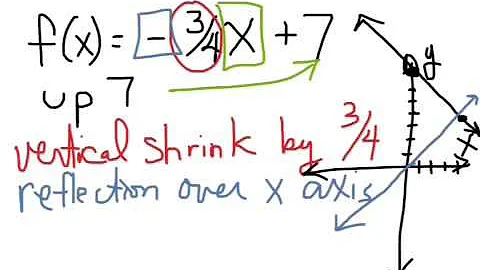 f(x) = - 3/4 x + 7
up 7
vertical shrink by 3/4
reflection over x axis
y
x